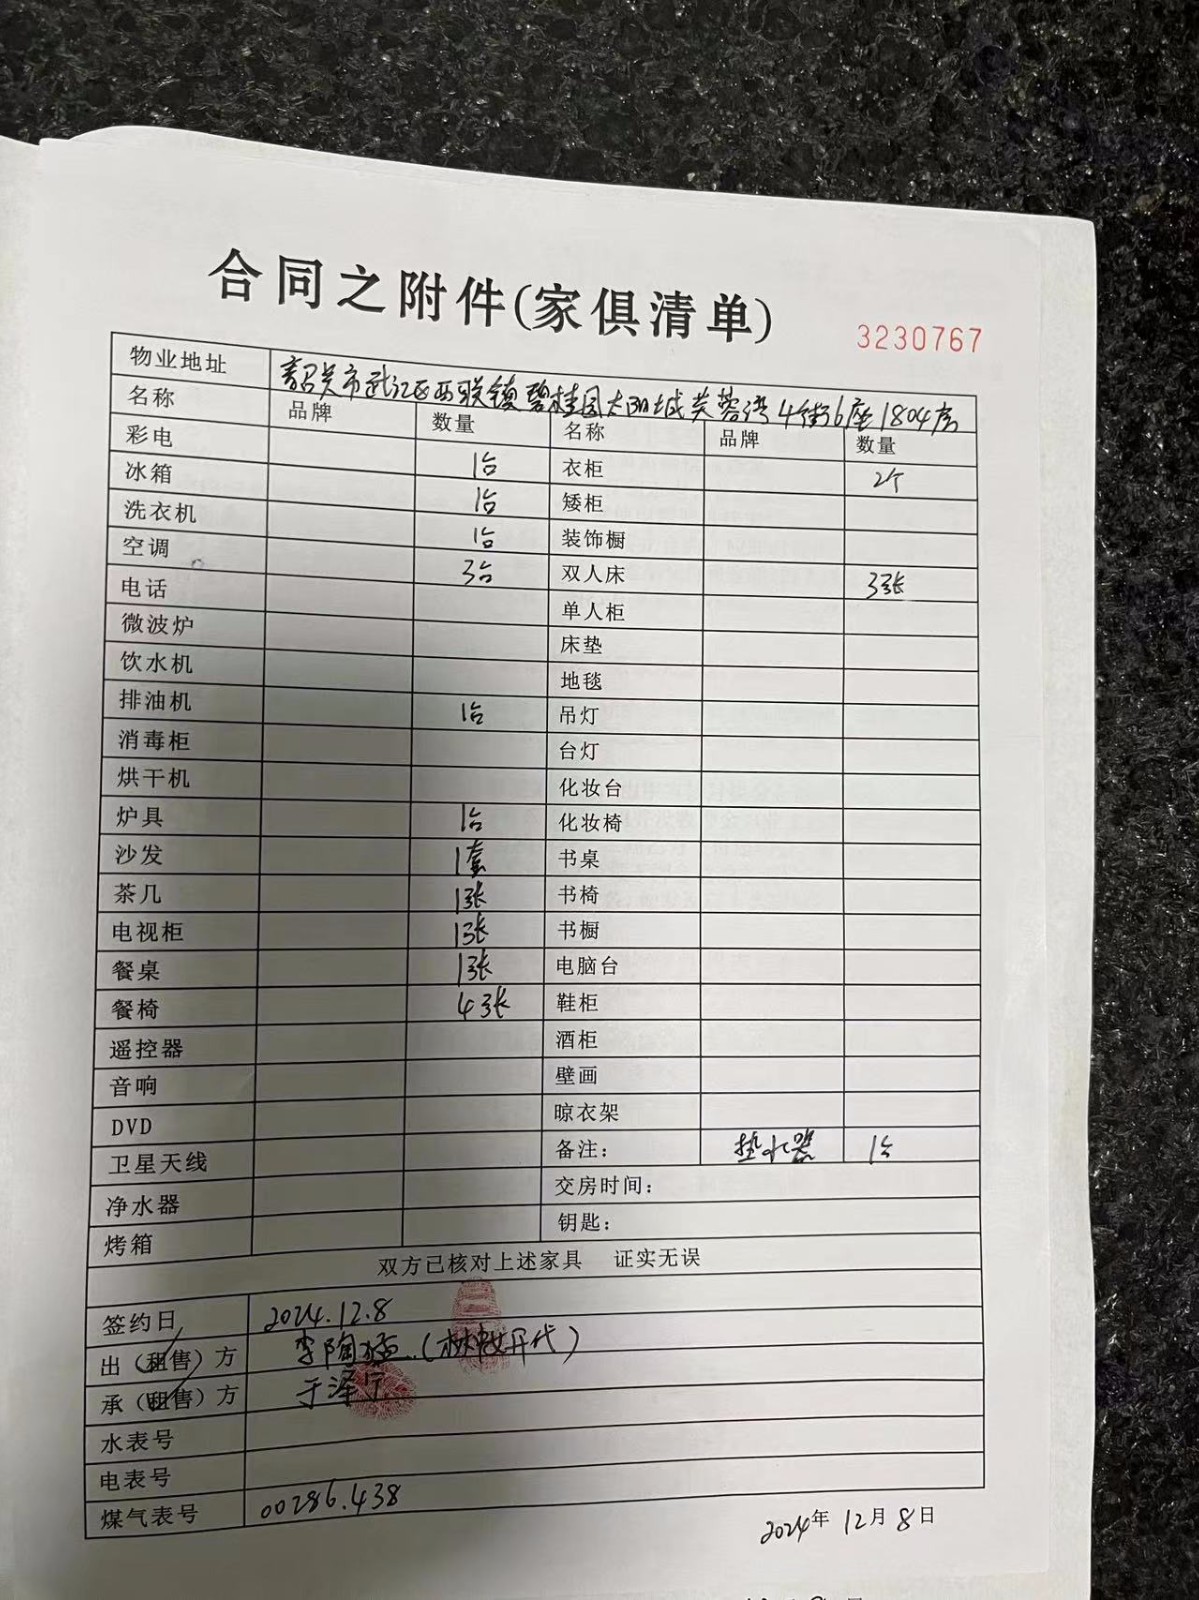 合同之附件(家俱清单)
3230767
物业地址 韶关市武江区西联镇碧桂园太阳城芙蓉湾4街6座1804房
名称 品牌 数量 名称 品牌 数量
彩电 1台 衣柜 2个
冰箱 1台 矮柜
洗衣机 1台 装饰橱
空调 3台 双人床 3张
电话 单人柜
微波炉 床垫
饮水机 地毯
排油机 1台 吊灯
消毒柜 台灯
烘干机 化妆台
炉具 1台 化妆椅
沙发 1套 书桌
茶几 1张 书椅
电视柜 1张 书橱
餐桌 1张 电脑台
餐椅 4张 鞋柜
遥控器 酒柜
音响 壁画
DVD 晾衣架
卫星天线 备注: 热水器 1台
净水器 交房时间:
烤箱 钥匙:
双方已核对上述家具 证实无误
签约日 2024.12.8
出(租售)方 李陶 代)
承(租售)方 于泽宁
水表号
电表号
煤气表号 00286.438
2024年12月8日